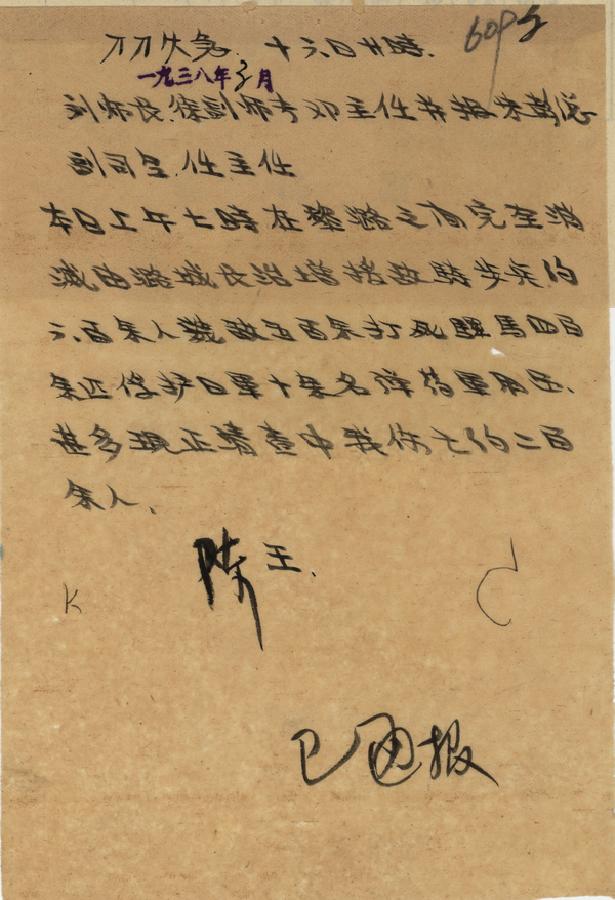 万万火急 十六日廿時. 60P2
一九三八年3月
刘师长徐副师长邓主任并报朱彭总
副司令.任主任
本日上午七時在黎路之间完全消
滅由潞城长治增援敌騎步兵约
六百余人斃敌五百余打死騾馬四百
余匹俘护日軍十余名弹葯軍用品、
甚多現正清查中我伤亡约二百
余人、
陈王.
K
已电报